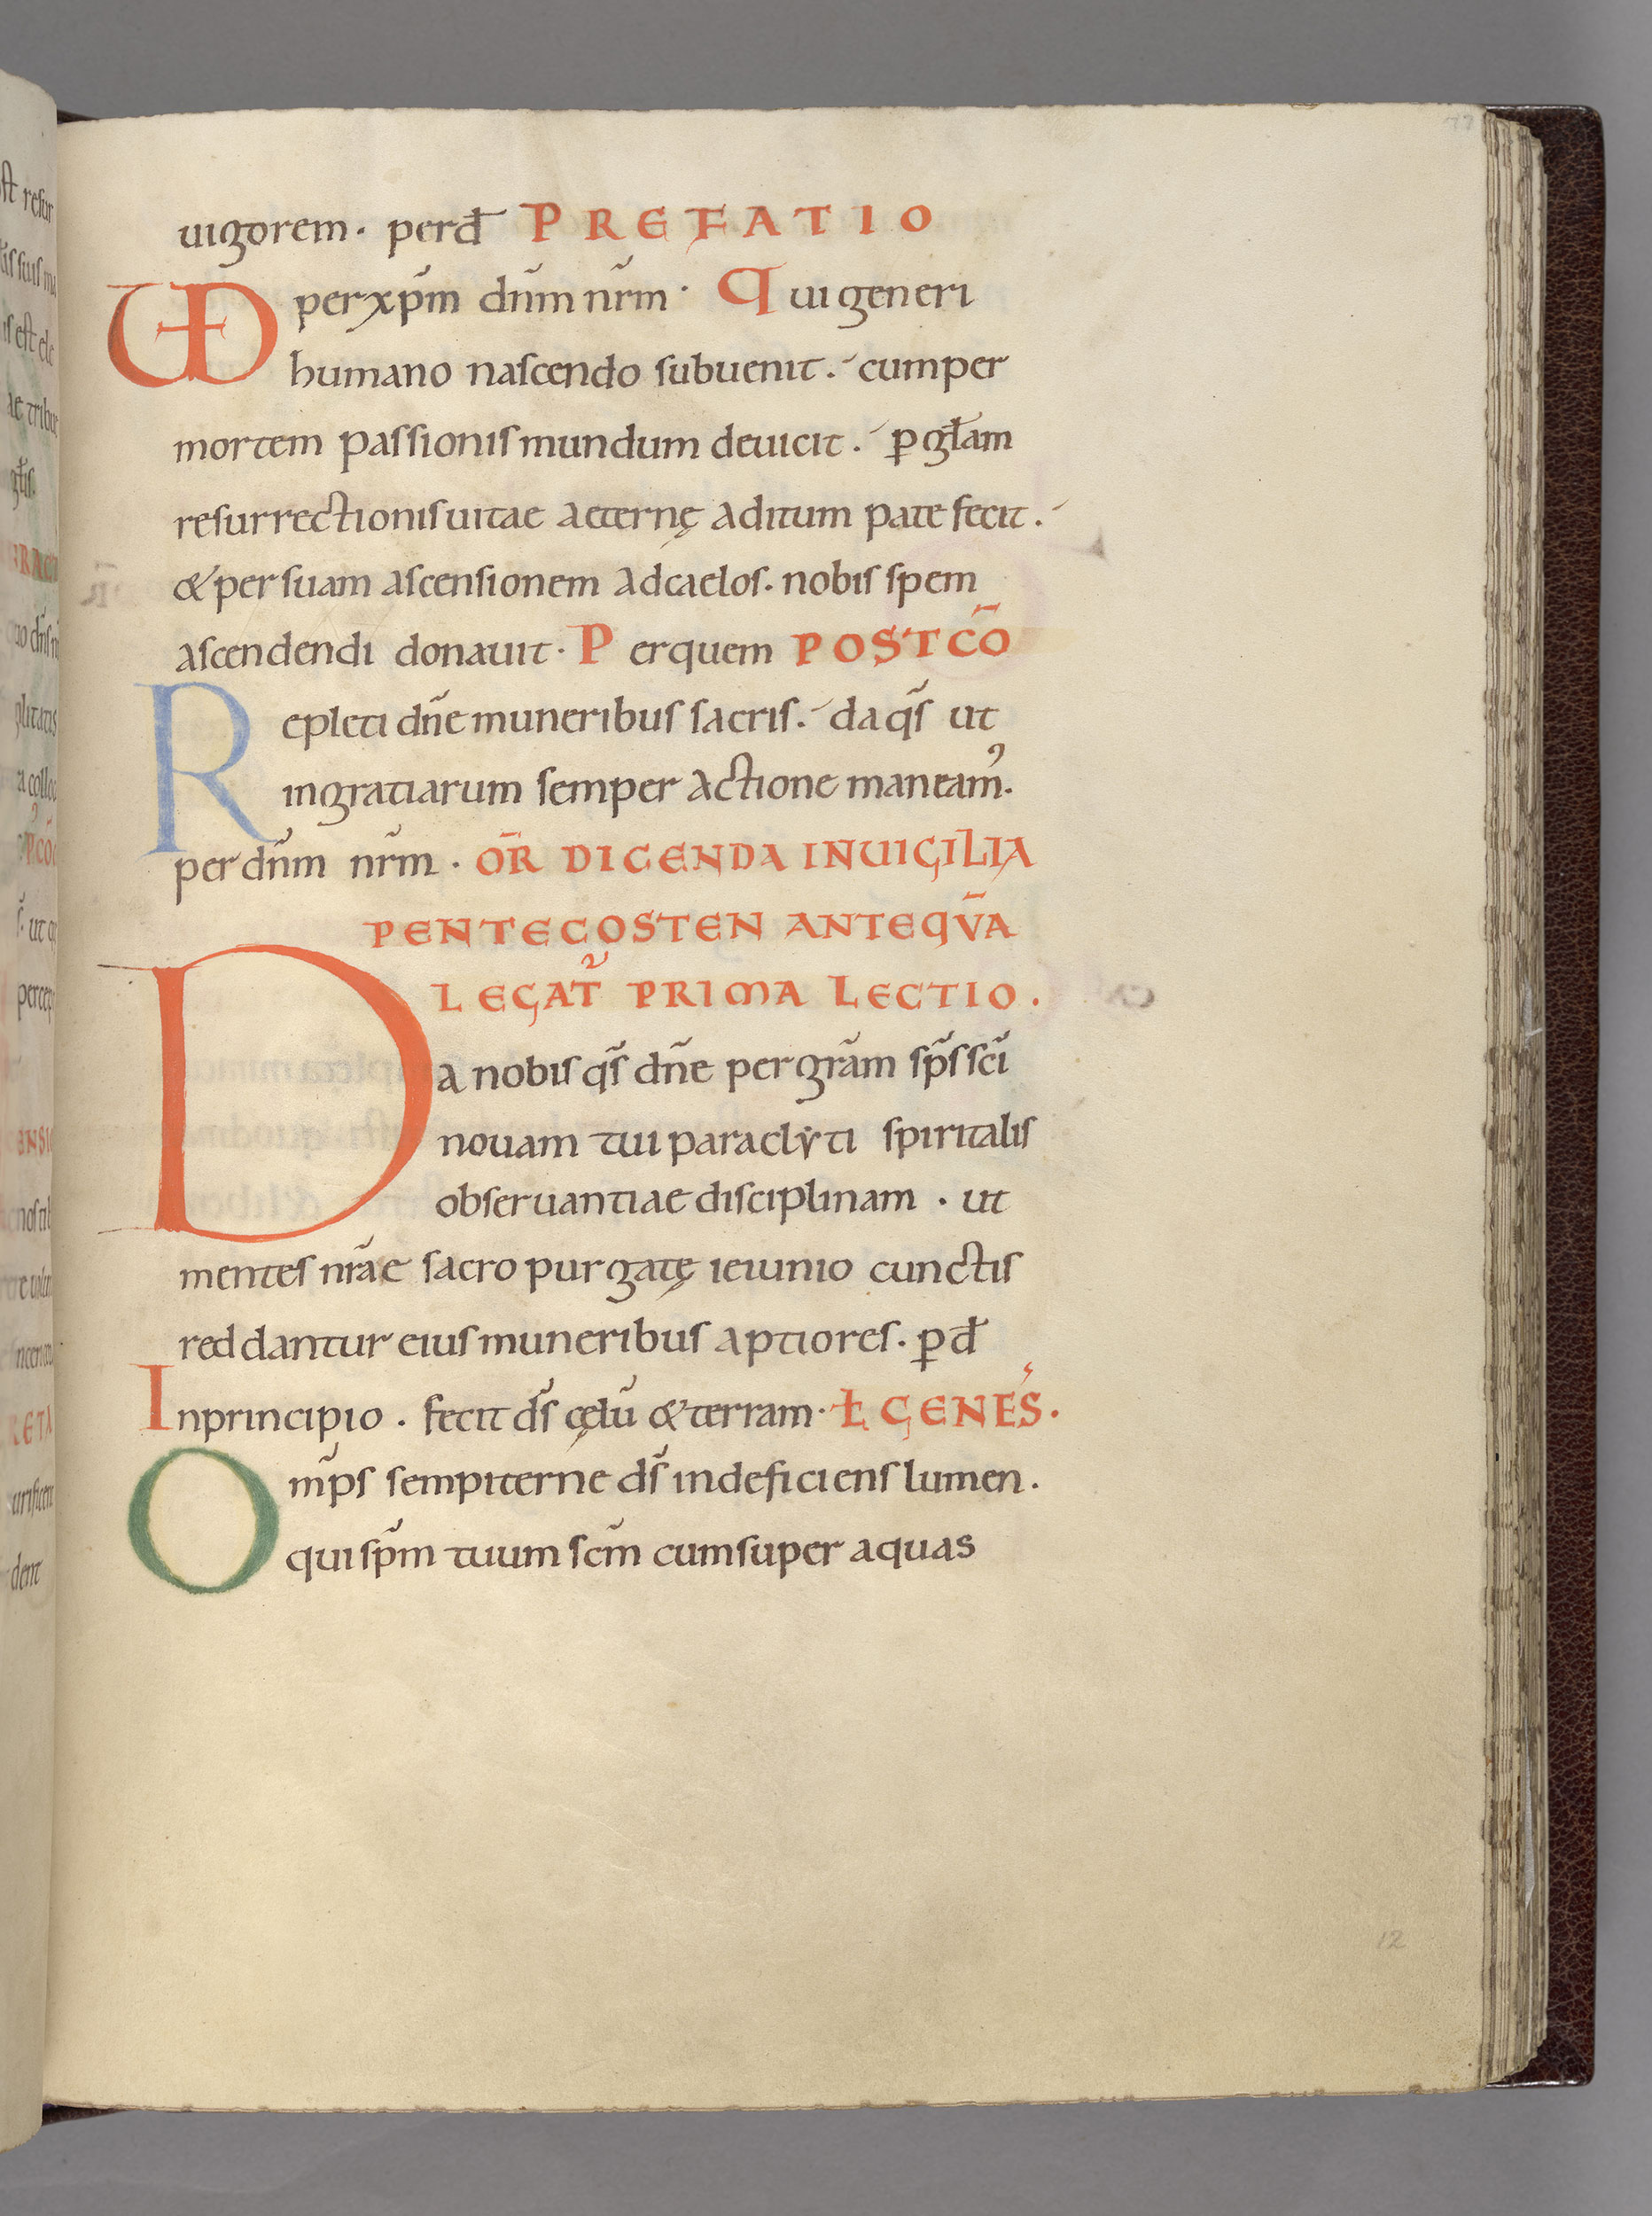 uigorem · perđ PREFATIO
VD perxp̄m dn̄m nr̄m · Qui generi
humano nascendo subuenit · cumper
mortem passionis mundum deuicit · ꝑ gl̄am
resurrectionis uitae aeternę aditum patefecit ·
& per suam ascensionem adcaelos · nobis spem
ascendendi donauit · Perquem POSTCŌ
Repleti dn̄e muneribus sacris · da qs̄ ut
ingratiarum semper actione maneamꝰ ·
per dn̄m nr̄m · OR̄ DICENDA INUIGILIA
PENTECOSTEN ANTEQV̄A
LEGAT᷑ PRIMA LECTIO ·
Da nobis qs̄ dn̄e per grām sp̄s sc̄i
nouam tui paraclẏti spiritalis
obseruantiae disciplinam · ut
mentes nr̄ae sacro purgatę ieiunio cunctis
reddantur eius muneribus aptiores · ꝑ đ
Inprincipio · fecit ds̄ cęlū & terram · Ł GENES̄ ·
Om̄ps sempiterne ds̄ indeficiens lumen ·
qui sp̄m tuum sc̄m cumsuper aquas
12